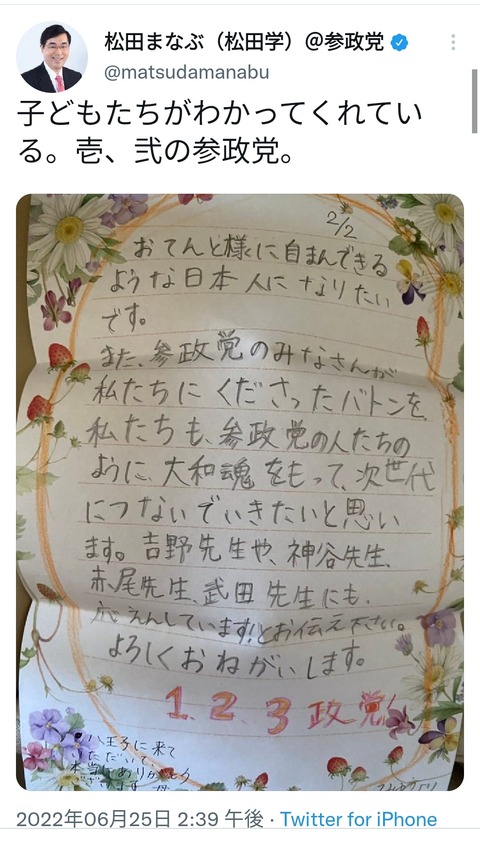 松田まなぶ（松田学）@参政党
@matsudamanabu
子どもたちがわかってくれてい
る。壱、弐の参政党。
2/2
おてんと様に自まんできる
ような日本人になりたい
です。
また、参政党のみなさんが
私たちにくださったバトンを、
私たちも、参政党の人たちの
ように、大和魂をもって、次世代
につないでいきたいと思い
ます。吉野先生や、神谷先生、
赤尾先生、武田先生にも、
応えんしています!とお伝え下さい。
よろしくおねがいします。
1.2.3政党!
八王子に来て
いただいて、
本当にありがとう
ございます
2022年06月25日 2:39 午後 · Twitter for iPhone